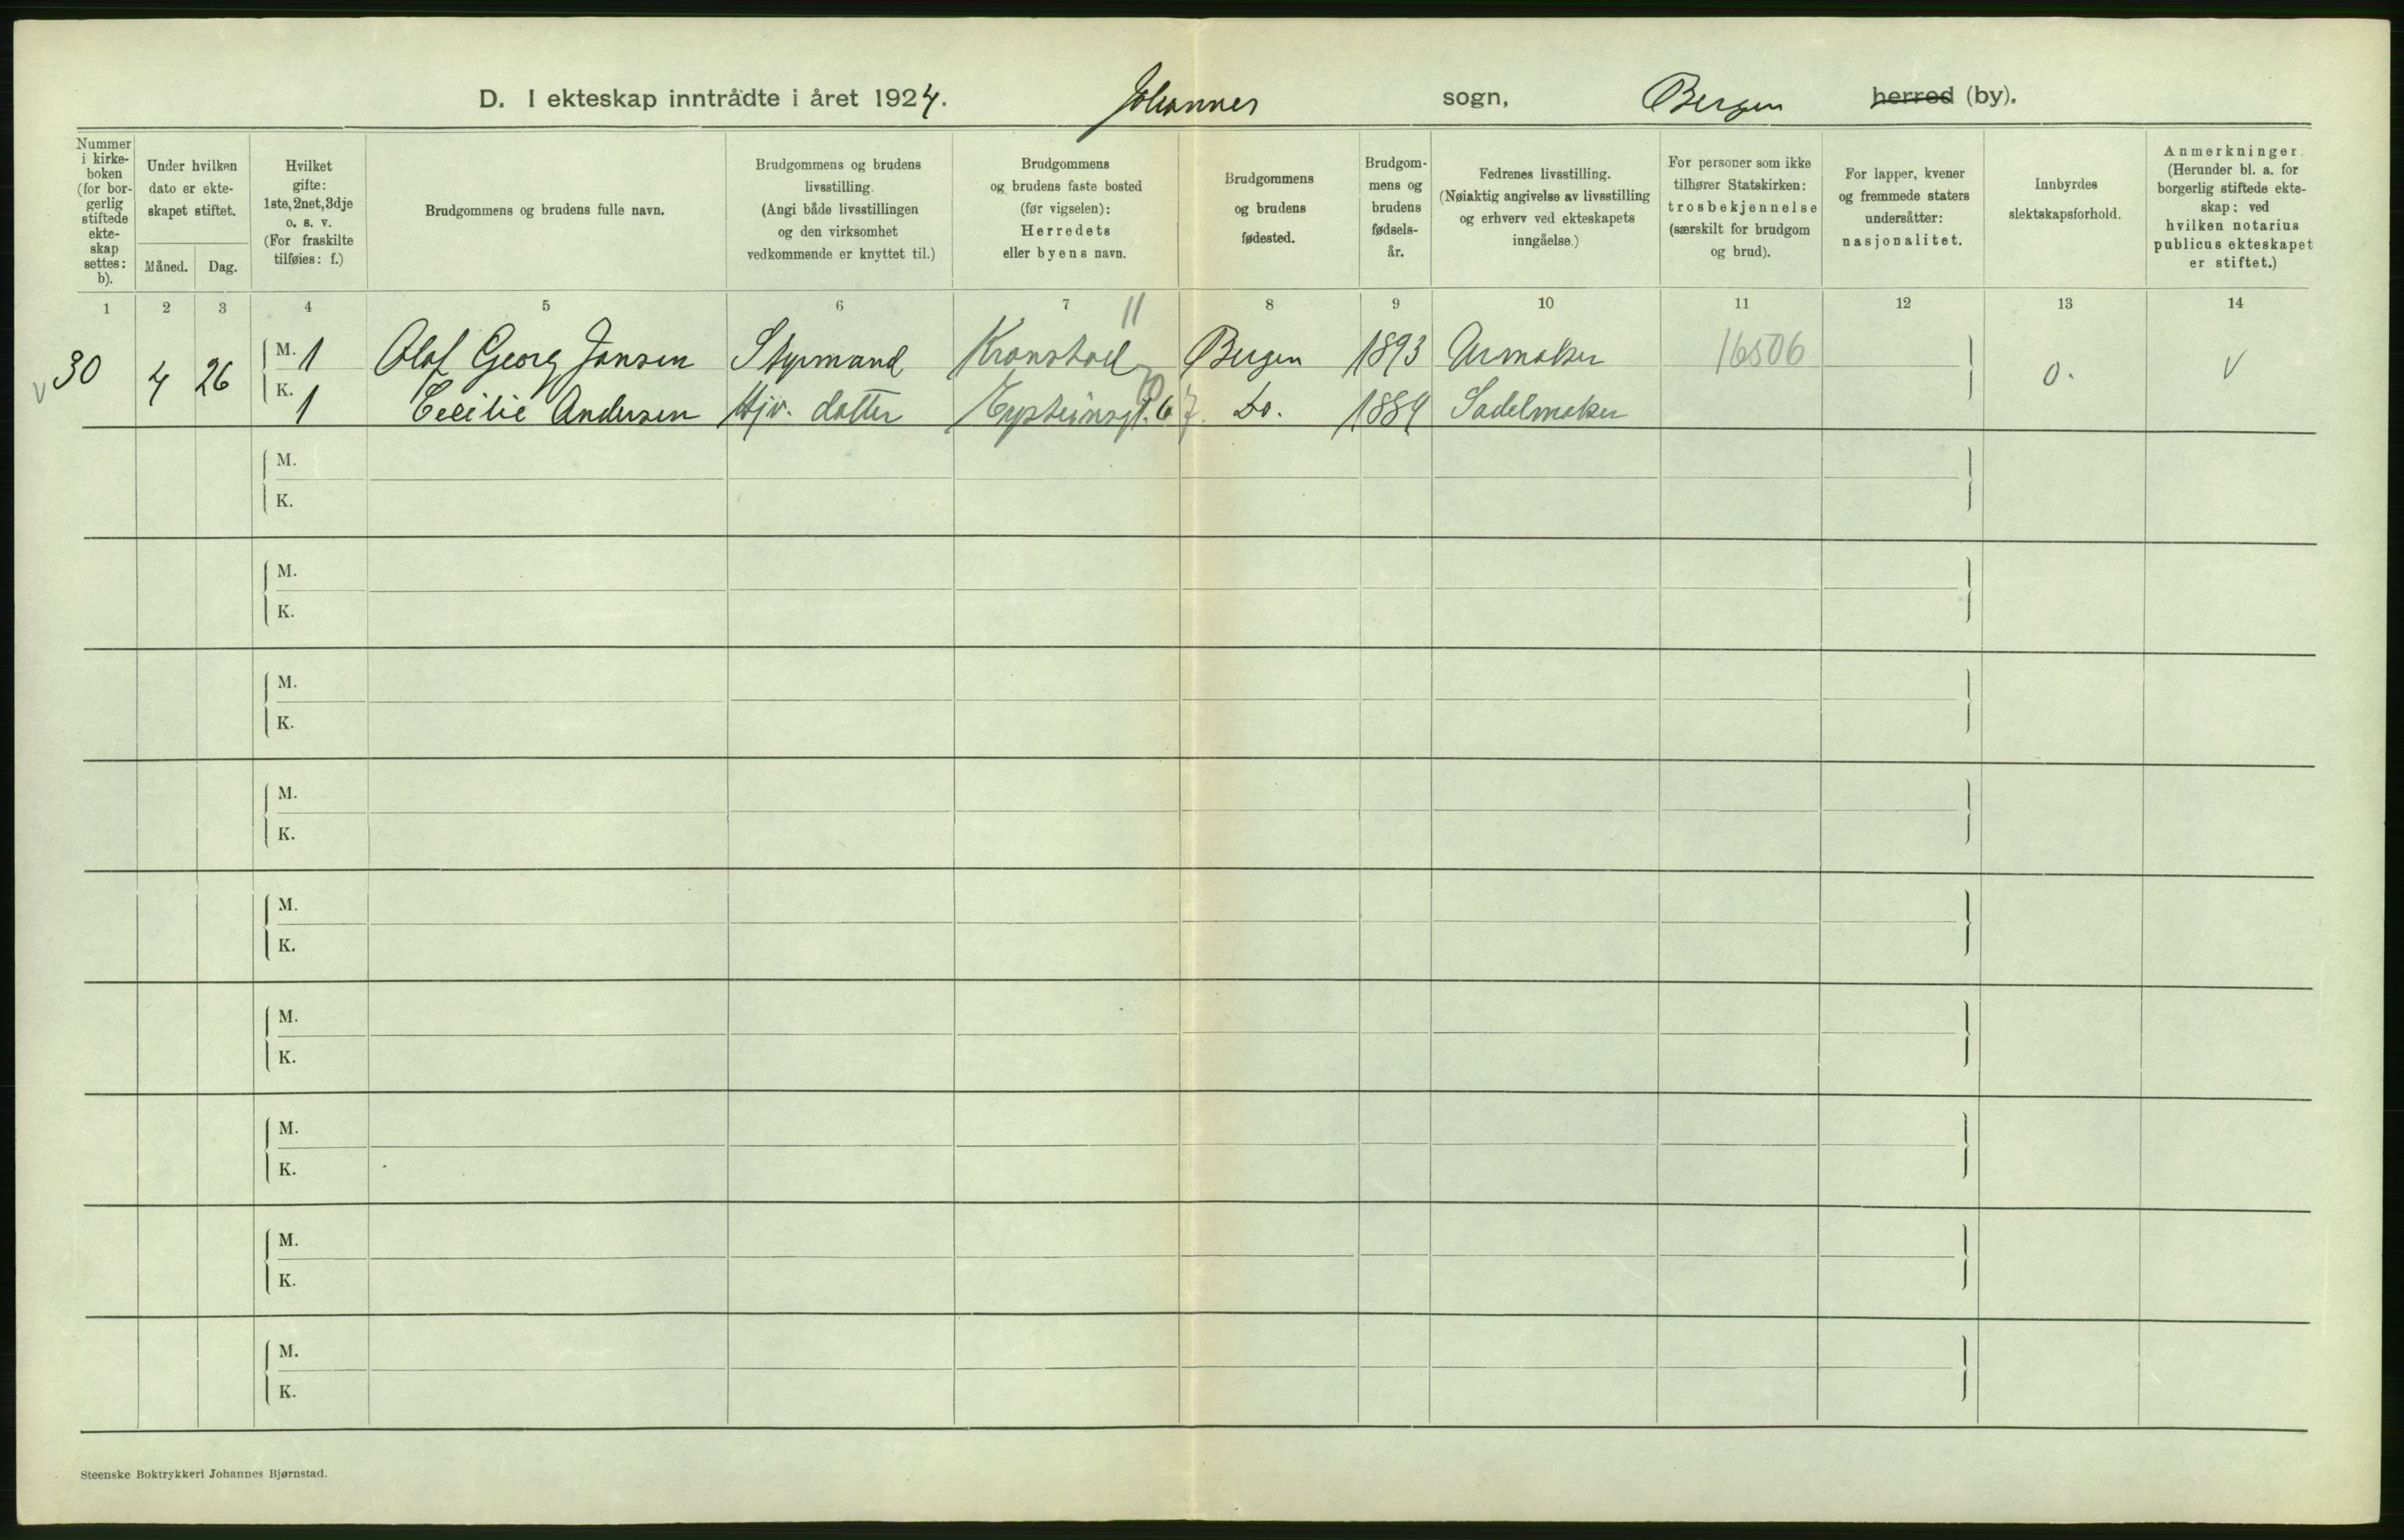 D. I ekteskap inntrådte i året 1924. Johannes sogn, Bergen herred (by).
Nummer i kirke- boken (for bor- gerlig stiftede ekte- skap settes: b).
Under hvilken dato er ekte- skapet stiftet.
Måned. Dag.
Hvilket gifte: 1ste, 2net, 3dje o. s. v. (For fraskilte tilføies: f.)
Brudgommens og brudens fulle navn.
Brudgommens og brudens livsstilling. (Angi både livsstillingen og den virksomhet vedkommende er knyttet til.)
Brudgommens og brudens faste bosted (før vigselen): Herredets eller byens navn.
Brudgommens og brudens fødested.
Brudgom- mens og brudens fødsels- år.
Fedrenes livsstilling. (Nøiaktig angivelse av livsstilling og erhverv ved ekteskapets inngåelse.)
For personer som ikke tilhører Statskirken: trosbekjennelse (særskilt for brudgom og brud).
For lapper, kvener og fremmede staters undersåtter: nasjonalitet.
Innbyrdes slektskapsforhold.
Anmerkninger. (Herunder bl. a. for borgerlig stiftede ekte- skap: ved hvilken notarius publicus ekteskapet er stiftet.)
1 2 3 4 5 6 7 8 9 10 11 12 13 14
11
30 4 26 M. 1 Olaf Georg Jansen Styrmand Kronstad Bergen 1893 Urmaker 16506 0. v
K. 1 Cecilie Andersen Hjv. datter Do. 1884 Sadelmaker
M.
K.
M.
K.
M.
K.
M.
K.
M.
K.
M.
K.
M.
K.
M.
K.
M.
K.
Steenske Boktrykkeri Johannes Bjørnstad.